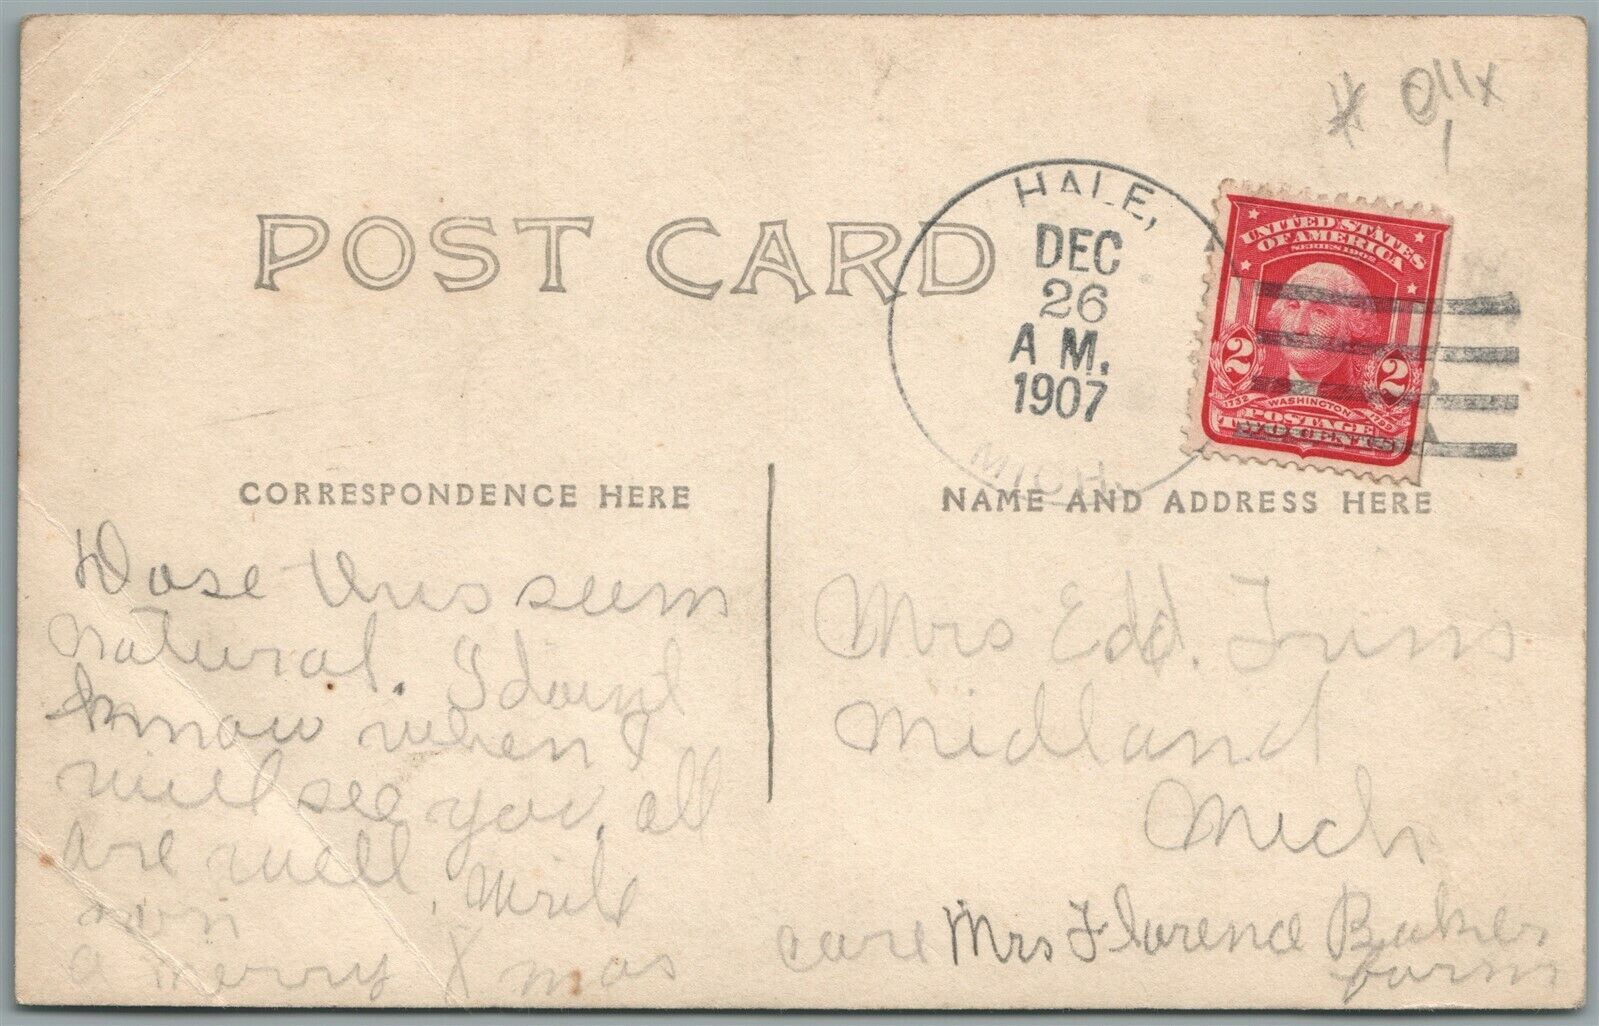 POST CARD
HALE,
DEC
26
A M.
1907
MICH.
UNITED STATES
OF AMERICA
SERIES 1902
2 2
1732 WASHINGTON 1799
POSTAGE
TWO CENTS
CORRESPONDENCE HERE
NAME AND ADDRESS HERE
Dose this seem
natural. I dount
know when I
will see you, all
are well, write
a merry Xmas
Mrs Edd.
Midland
Mich
care Mrs Florence Baker
farm